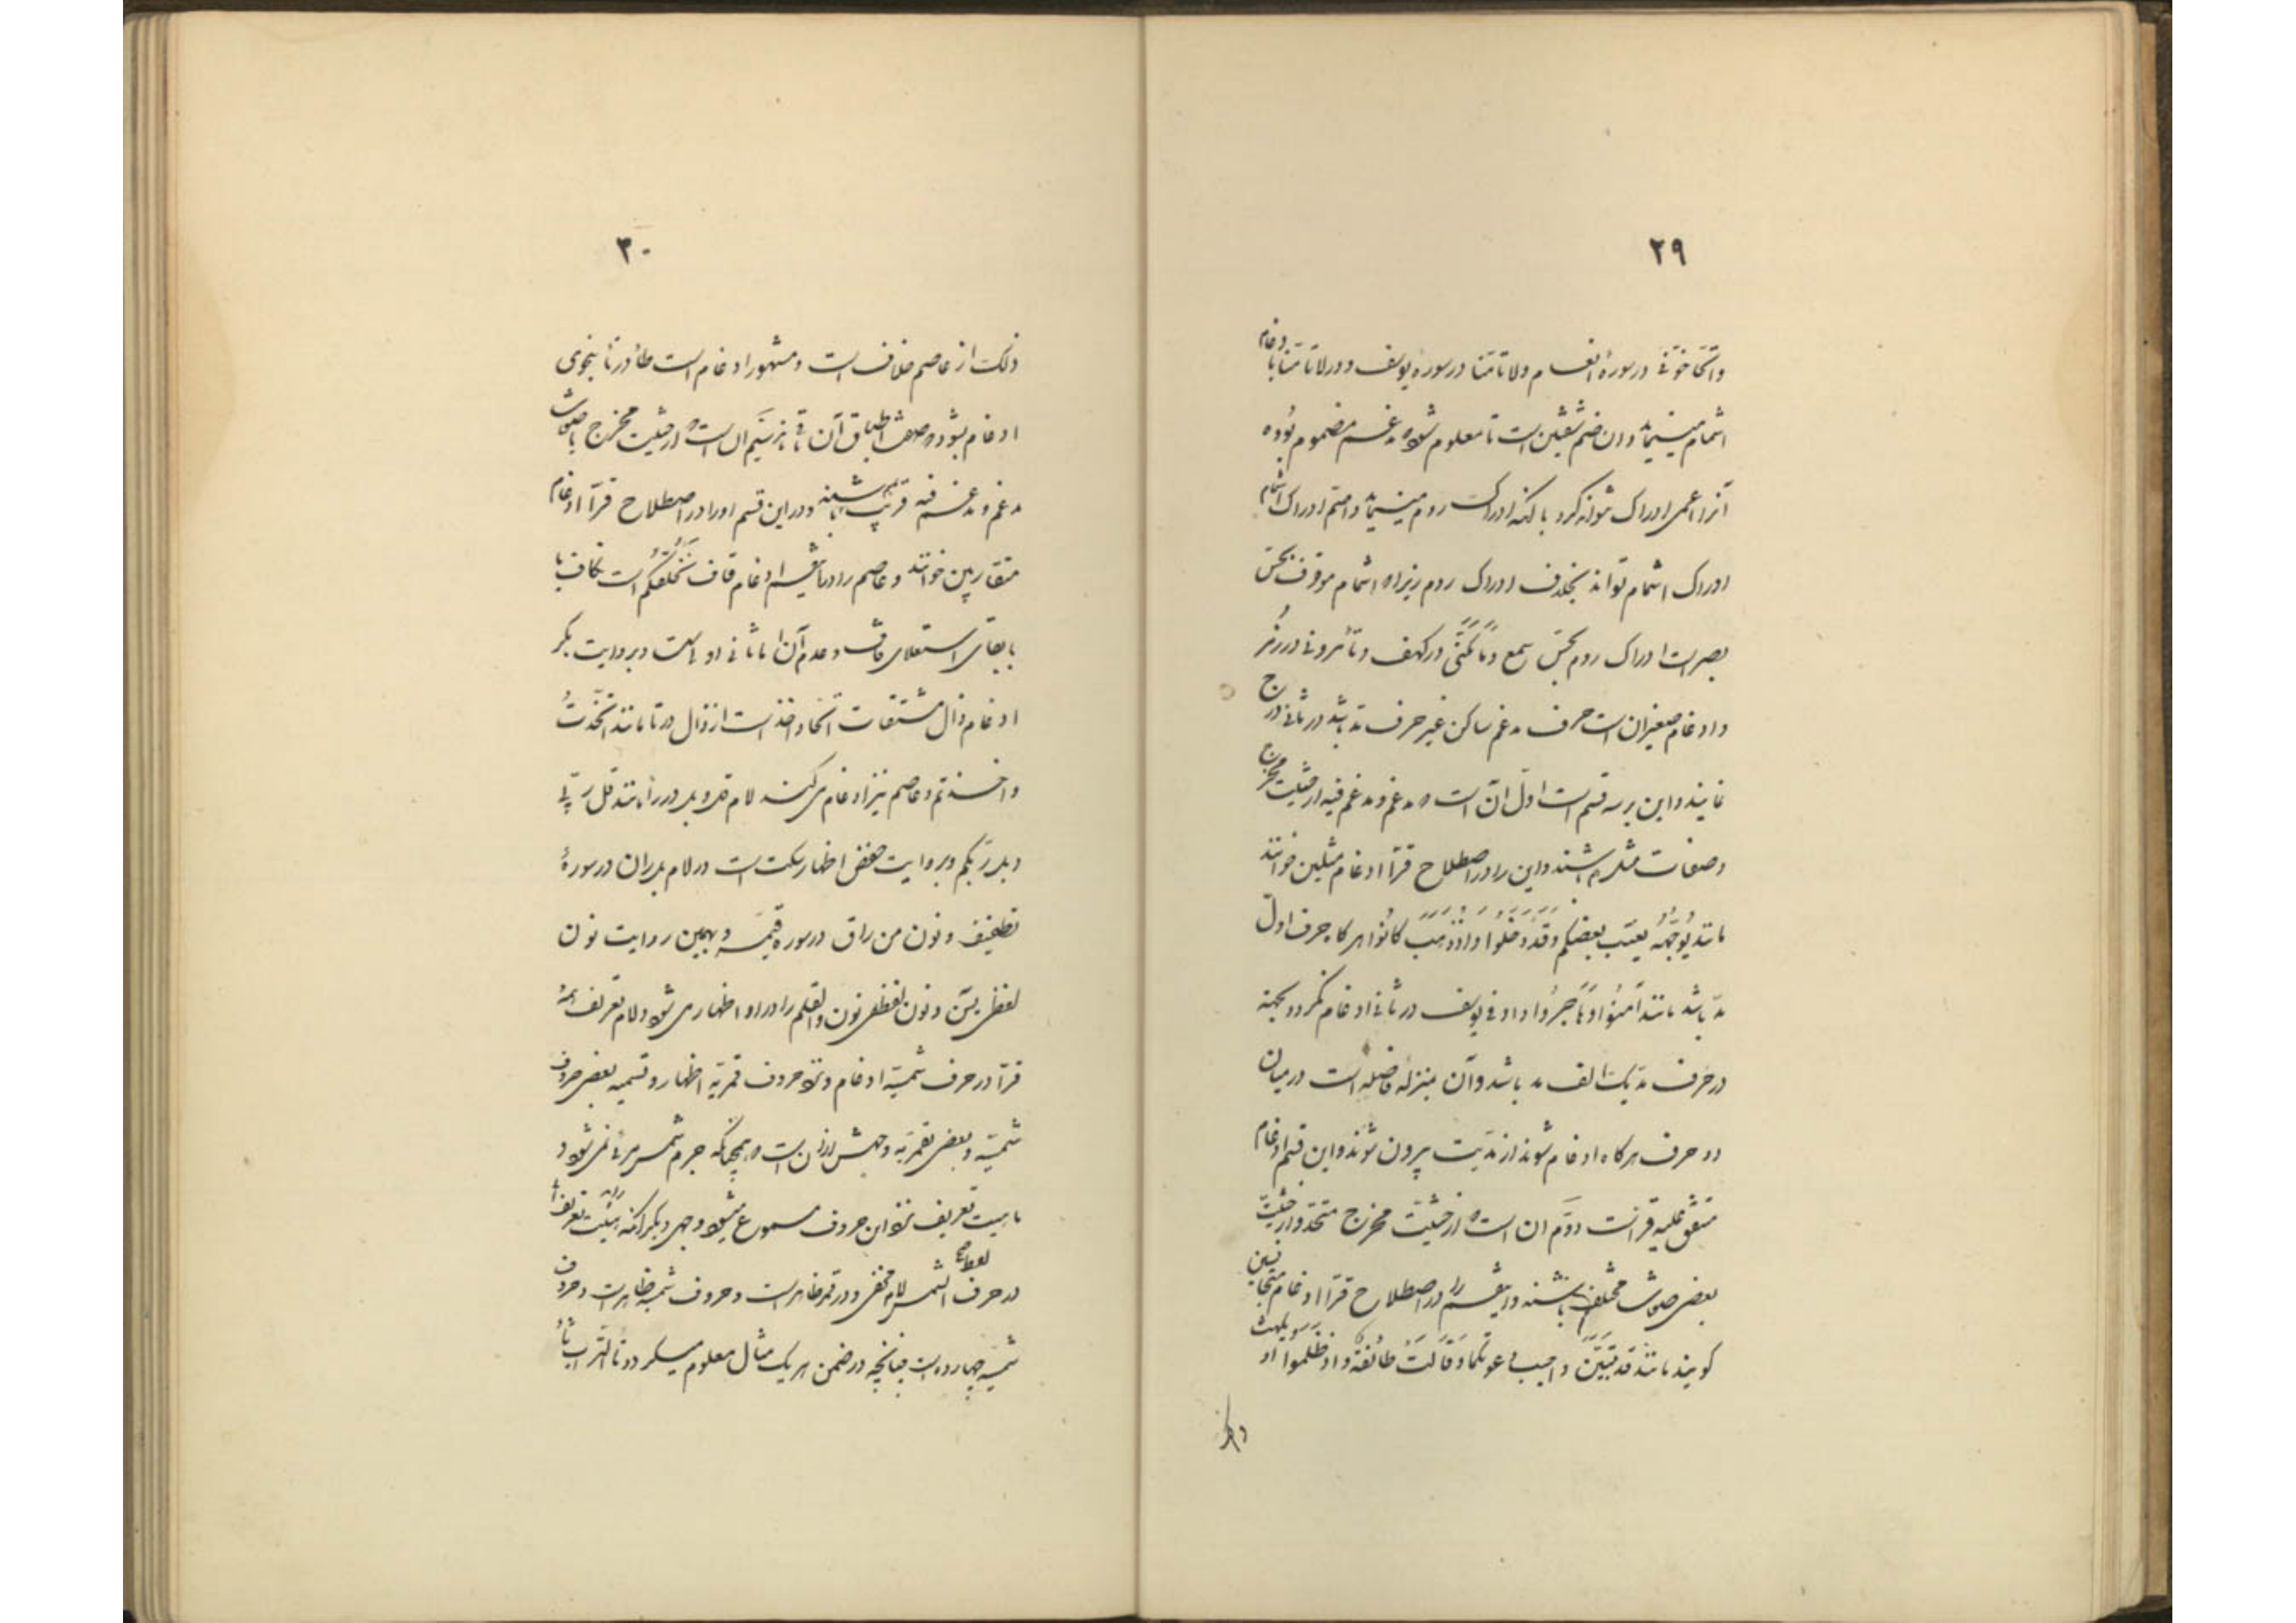 ۲۹
واتحاجونی در سورهٔ انعام و لا تامنا در سوره یوسف و در لا تامنا با ادغام
اشمام مینمایند و ان ضم شفتین است تا معلوم شود که مدغم مضموم بوده
آنرا اعمی ادراک نتواند کرد با آنکه ادراک روم مینماید و اصم ادراک اشمام
ادراک اشمام تواند بخلاف ادراک روم زیرا که اشمام موقوف بحس
بصر است ادراک روم بحس سمع و ما مکنی در کهف و تأمرونی در زمر
و ادغام صغیر ان است حرف مدغم ساکن غیر حرف مد باشد در ثانی درج
نمایند و این بر سه قسم است اول آن است که مدغم و مدغم فیه از حیثیت مخرج
و صفات مثل هم باشند و این را در اصطلاح قرآ ادغام مثلین خوانند
مانند یُوَجِّهْهُ یغتب بعضکم وَقَدْ دَخَلُوا وَ اذْ ذَهَبَ کانُوا هر گاه حرف اول
مد باشد مانند آمَنُوا وَهَاجَرُوا و او فی یوسف در ثانی ادغام نمیگردد بجهته
در حرف مد یک الف مد باشد و آن بمنزله فاصله است در میان
دو حرف هر گاه ادغام شوند از مدیت بیرون شوند و این قسم ادغام
متفق علیه قرا است دوّم ان است که از حیثیّت مخرج متحد و از حیثیت
بعضی صفات مختلف باشند و اینقسم را در اصطلاح قرّا ادغام متجانسین
گویند مانند قَدْ تَبَیَّنَ و اجیبت دعوتکما وَقَالَتْ طائفَة و اذ ظَلَموا او
و از
۳۰
ذلک از عاصم خلاف است و مشهور ادغام است طا در تا بنحوی
ادغام بشود که صفت اطباق آن باقی باشد سیم ان است که از حیثیت مخرج یا صفات
مدغم و مدغم فیه قریب باشند و در این قسم او را در اصطلاح قرآ ادغام
متقاربین خوانند و عاصم را در اینقسم ادغام قاف نخلقکم است بکاف با
با بقای استعلای قاف و عدم آن اما ثانی اولی است و بروایت بکر
ادغام ذال مشتقات اتخاذ و اخذ است از ذال در تا مانند اتخذتُ
و اخذتم و عاصم نیز ادغام می کند لام قل و بل در را مانند قل رَبّی
و بل ربکم و بروایت حفص اظهار سکت است در لام بل ران در سورهٔ
تطفیف و نون من راق در سوره قیمه و بهمین روایت نون
لفظی یسَ و نون لفظی نون و القلم را در واو اظهار می شود و لام تعریف همه
قرآ در حرف شمسیّه ادغام و نزد حروف قمریّه اظهار و تسمیه بعضی حروف
شمسیّه و بعضی بقمریّه وجهش از آن است که همچنانکه جرم شمس مرئی نمی شود و
ماهیت تعریف نزد این حروف مسموع نمیشود و وجهی دیگر آنکه
در حرف الشمس لام مخفی و در قمر ظاهر است و حروف شمسیه ظاهر است و حروف
شمسیّه چهارده است چنانچه در ضمن هر یک مثال معلوم میگردد تا التراب ثا